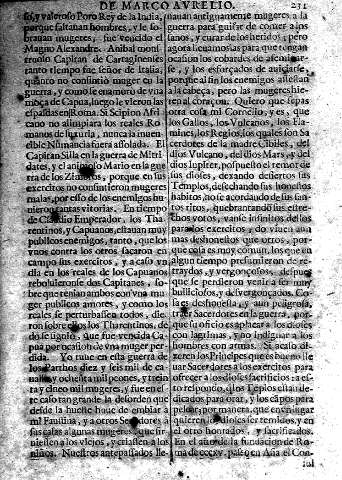 DE MARCO AVRELIO. 231
so, y valeroso Poro Rey de la India,
porque faltauan hombres, y le so-
brauan mugeres, fue vencido el
Magno Alexandre. Anibal mont
truolo Capitan de Cartaginenses
tanto tiempo fue señor de Italia,
quanto no consintio muger en la
guerra, y como se enamoro de vna
moça de Capua, luego le vieron las
espaldas en Roma. Si Scipion Afri
cano no alimpiara los reales Ro
manos de luxuria, nunca la inuen
cible Numancia fuera assolada. El
Capitan Silla en la guerra de Mitri
dates, y el animoso Mario en la gue
rra de los Zimbros, porque en sus
exercitos no consintieron mugeres
malas, por esso de los enemigos hu-
uieron tantas vitorias. En tiempo
de Claudio Emperador, los Tha
rentinos, y Capuanos, estauan muy
publicos enemigos, tanto, que los
vnos contra los otros sacaron en
campo sus exercitos, y acaso vn
dia en los reales de los Capuanos
reboluieronse dos Capitanes, so-
bre que tenian ambos con vna mu
ger publicos amores, y como los
reales se perturbassen todos, die
ron sobre ellos los Tharentinos, de
do se siguio, que fue vencida Capua
por ocasion de vna muger per-
dida. Yo tuue en esta guerra de
los Parthos diez y seis mil de ca-
uallo, y ochenta mil peones, y trein
ta y cinco mil mugeres, y fue en es-
te caso tan grande la desorden que
desde la hueste huue de embiar a
mi Faustina, y a otros Senadores a
sus casas algunas mugeres, que sir
uiessen a los viejos, y criassen a los
niños. Nuestros antepassados lle-
nauan antiguamente mugeres a la
guerra para guisar de comer a los
sanos, y curar de los heridos; pero
agora lleuamoslas para que tengan
ocasion los cobardes de afemina-
se, y los esforçados de auiciarse,
porque al fin los enemigos aciertan
a la cabeça, pero las mugeres hie-
ren al coraçon. Quiero que sepas
otra cosa mi Cornelio, y es, que
los Galos, los Vulcanos, los Fla-
mines, los Regios, los quales son Sa
cerdotes de la madre Cibiles, del
dios Vulcano, del dios Mars, y del
dios Iupiter, pospuesto el temor de
sus dioses, dexando desiertos sus
Templos, desechando sus honestos
habitos, no se acordando de sus san-
tos ritos, quebrantando sus estre-
chos votos, vanse infinitos dellos
para los exercitos, do viuen aun
mas deshonestos que otros, por
que cosa es muy comun, los que en
algun tiempo presumieron de re-
traydos, y vergonçosos, despues
que se perdieron venir a ser muy
bulliciosos, y desvergonçados. Co-
sa es deshonesta, y aun peligrosa,
traer Sacerdotes en la guerra, por-
que su oficio es aplacar a los dioses
con lagrimas, y no indignar a los
hombres con armas. Si acaso di-
zeren los Principes que es bueno lle
uar Sacerdotes a los exercitos para
ofrecer a los dioses sacrificios: a es-
to respondo, los Templos estan de-
dicados para orar, y los cāpos para
por manera, que en vn lugar
quieren los dioses ser temidos, y en
el otro honrados, y sacrificados.
En el año de la fundacion de Ro-
ma de passò en Asia el Con
sul